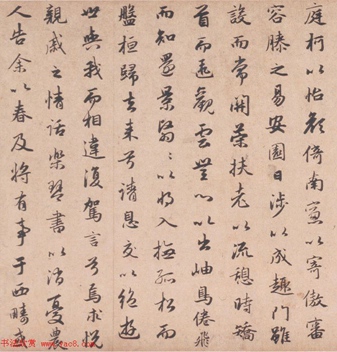 庭柯以怡顔倚南窓以寄傲審
容膝之易安園日涉以成趣門雖
設而常關策扶老以流憩時矯
首而遐觀雲無心以出岫鳥倦飛
而知還景翳翳以將入撫孤松而
盤桓歸去来兮請息交以絶遊
世與我而相違復駕言兮焉求悦
親戚之情話樂琴書以消憂農
人告余以春及將有事于西疇或